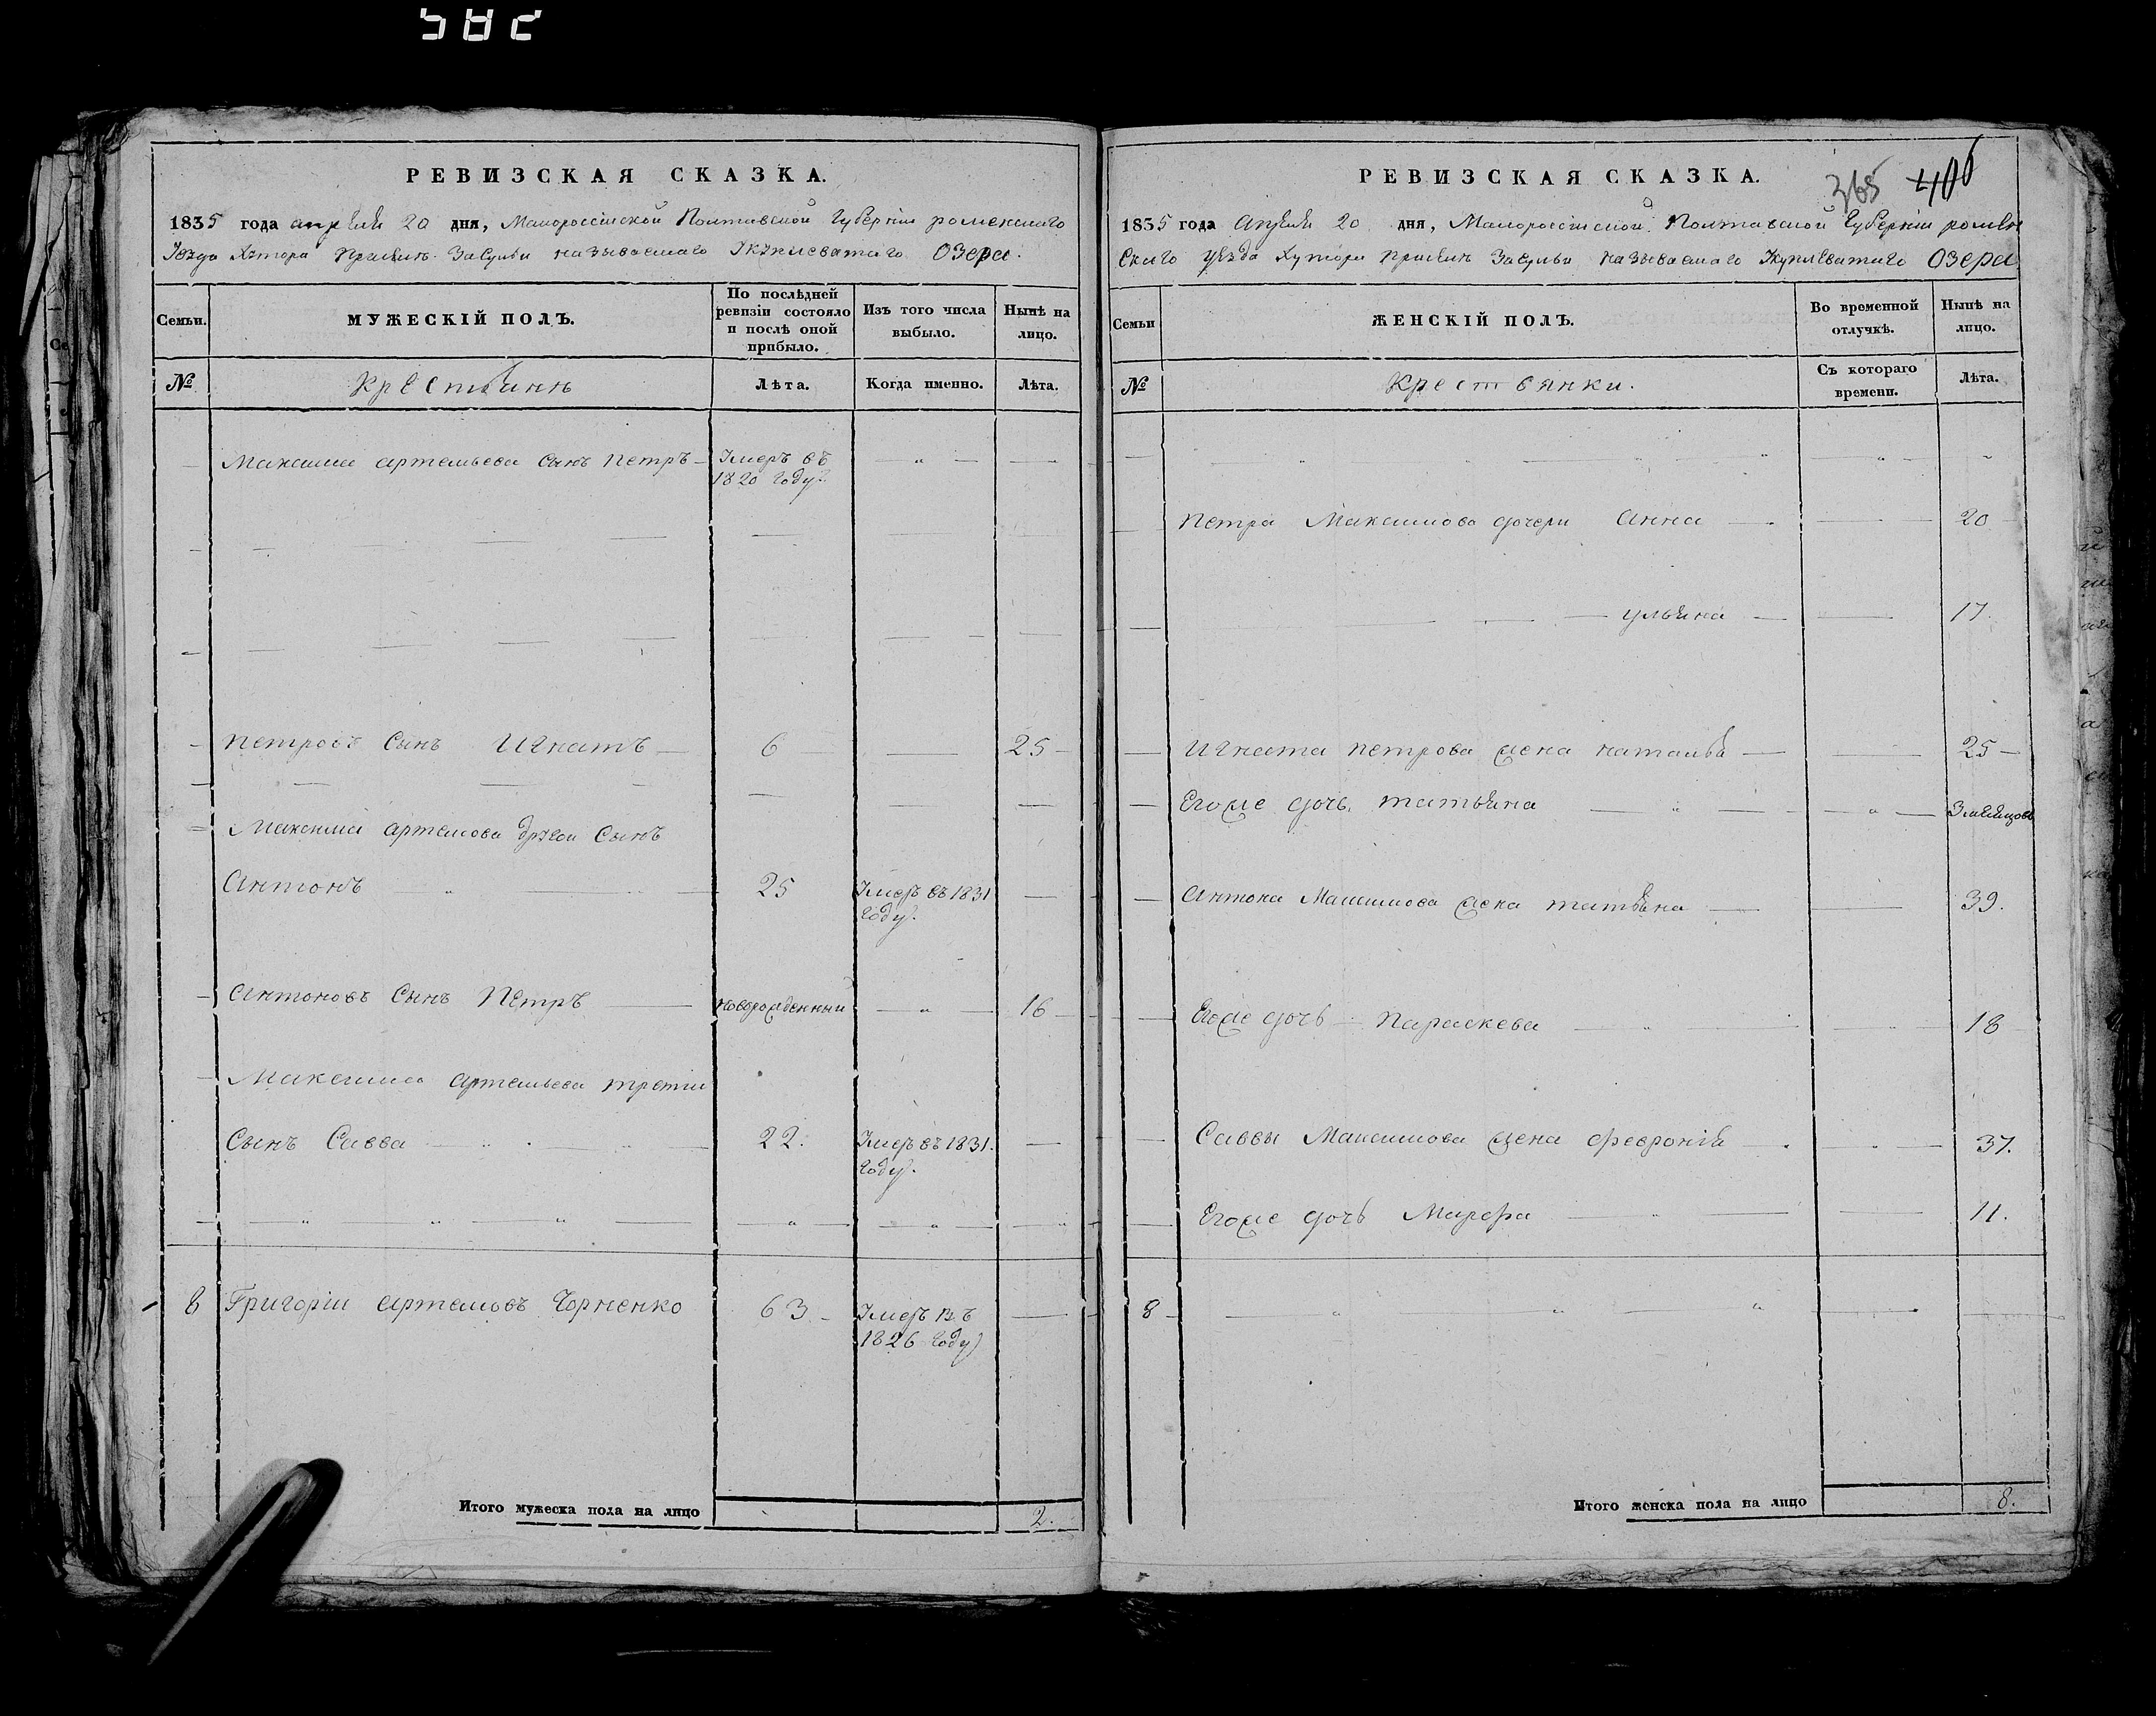 582
РЕВИЗСКАЯ СКАЗКА.
1835 года апреля 20 дня, Малороссійской Полтавской Губерніи роменского
Уѣзда Хутора при селѣ Засульи называемаго Озера.
Семьи.
МУЖЕСКІЙ ПОЛЪ.
По послѣдней ревизіи состояло и послѣ оной прибыло.
Изъ того числа выбыло.
Нынѣ на лицо.
№
Крестьянѣ
Лѣта.
Когда именно.
Лѣта.
Максима артемьева сынъ петръ
Умеръ въ
1820 году.
петровъ сынъ Игнатъ 6 25
Максима артемова другои Сынъ
Антонъ 25 Умеръ въ 1831
году.
Антоновъ Сынъ Петръ новорожденныи 16
Максима артемьева третіи
Сынъ Савва 22. Умеръ въ 1831.
году.
8 Григоріи артемовъ Чорненко 63 Умеръ въ
1826 году
Итого мужеска пола на лицо 2.
РЕВИЗСКАЯ СКАЗКА.
365 406
1835 года Апреля 20 дня, Малороссійской Полтавской Губерніи ромен
ского уѣзда Хутора при селѣ Засульи называемаго Озера
Семьи
ЖЕНСКІЙ ПОЛЪ.
Во временной отлучкѣ.
Нынѣ на лицо.
№
Крестьянки.
Съ котораго времени.
Лѣта.
петра Максимова дочери Анна 20
ульяна 17.
Игната петрова жена наталья 25
Егоже дочь татьяна 3 месяцовъ
Антона Максимова жена татьяна 39.
Егоже дочь Параскева 18
Саввы Максимова жена Февронія 37.
Егоже дочь Марфа 11.
8
Итого женска пола на лицо 8.